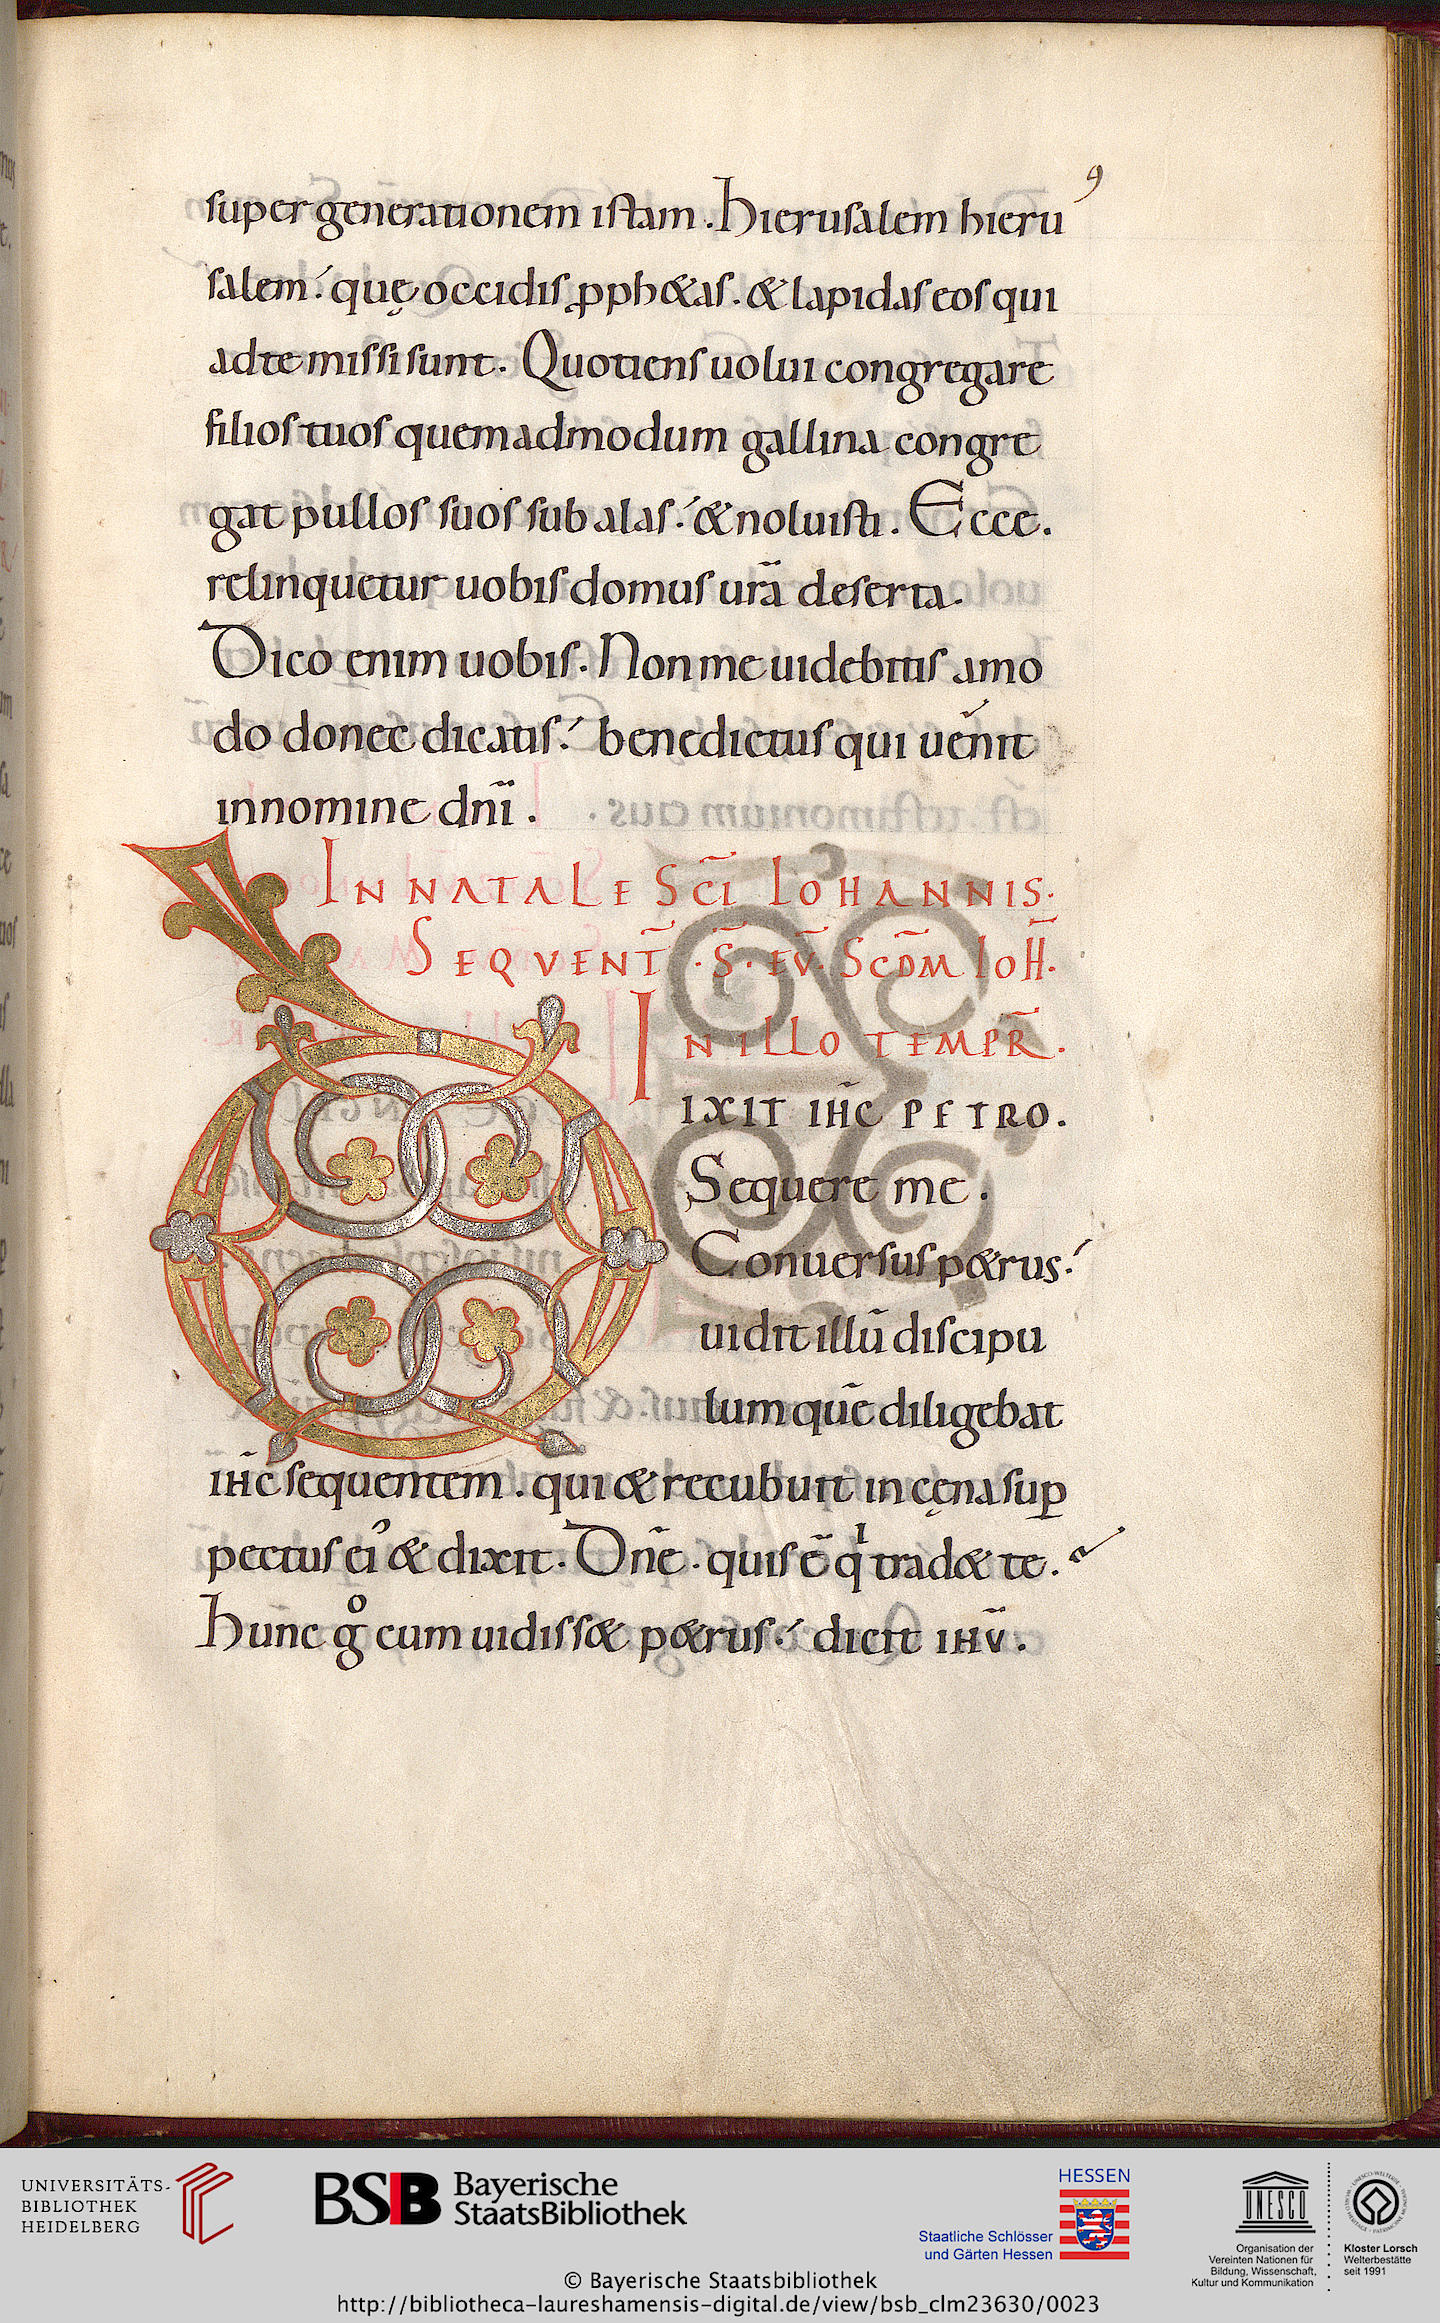 9
super generationem istam. Hierusalem hieru
salem! quę occidis pphetas. & lapidas eos qui
ad te missi sunt. Quotiens uolui congregare
filios tuos quemadmodum gallina congre
gat pullos suos sub alas! & noluisti. Ecce.
relinquetur uobis domus ur̄a deserta.
Dico enim uobis. Non me uidebitis amo
do donec dicatis! benedictus qui uenit
in nomine dn̄i.
IN NATALE SC̄I IOHANNIS.
SEQVENT̄ . S̄. EV̄. SCD̄M IOH̄.
IN ILLO TEMPR̄.
DIXIT IH̄C PETRO.
Sequere me.
Conuersus p&rus!
uidit illū discipu
lum quē diligebat
ih̄c sequentem. qui & recubuit in cęna sup̱
pectus ei' & dixit. Dn̄e. quis ē qͥ trad& te.
Hunc gͦ cum uidiss& p&rus! dicit ih̄u.
UNIVERSITÄTS-
BIBLIOTHEK
HEIDELBERG
BSB Bayerische
StaatsBibliothek
HESSEN
Staatliche Schlösser
und Gärten Hessen
UNESCO
Organisation der
Vereinten Nationen für
Bildung, Wissenschaft,
Kultur und Kommunikation
Kloster Lorsch
Welterbestätte
seit 1991
© Bayerische Staatsbibliothek
http://bibliotheca-laureshamensis-digital.de/view/bsb_clm23630/0023